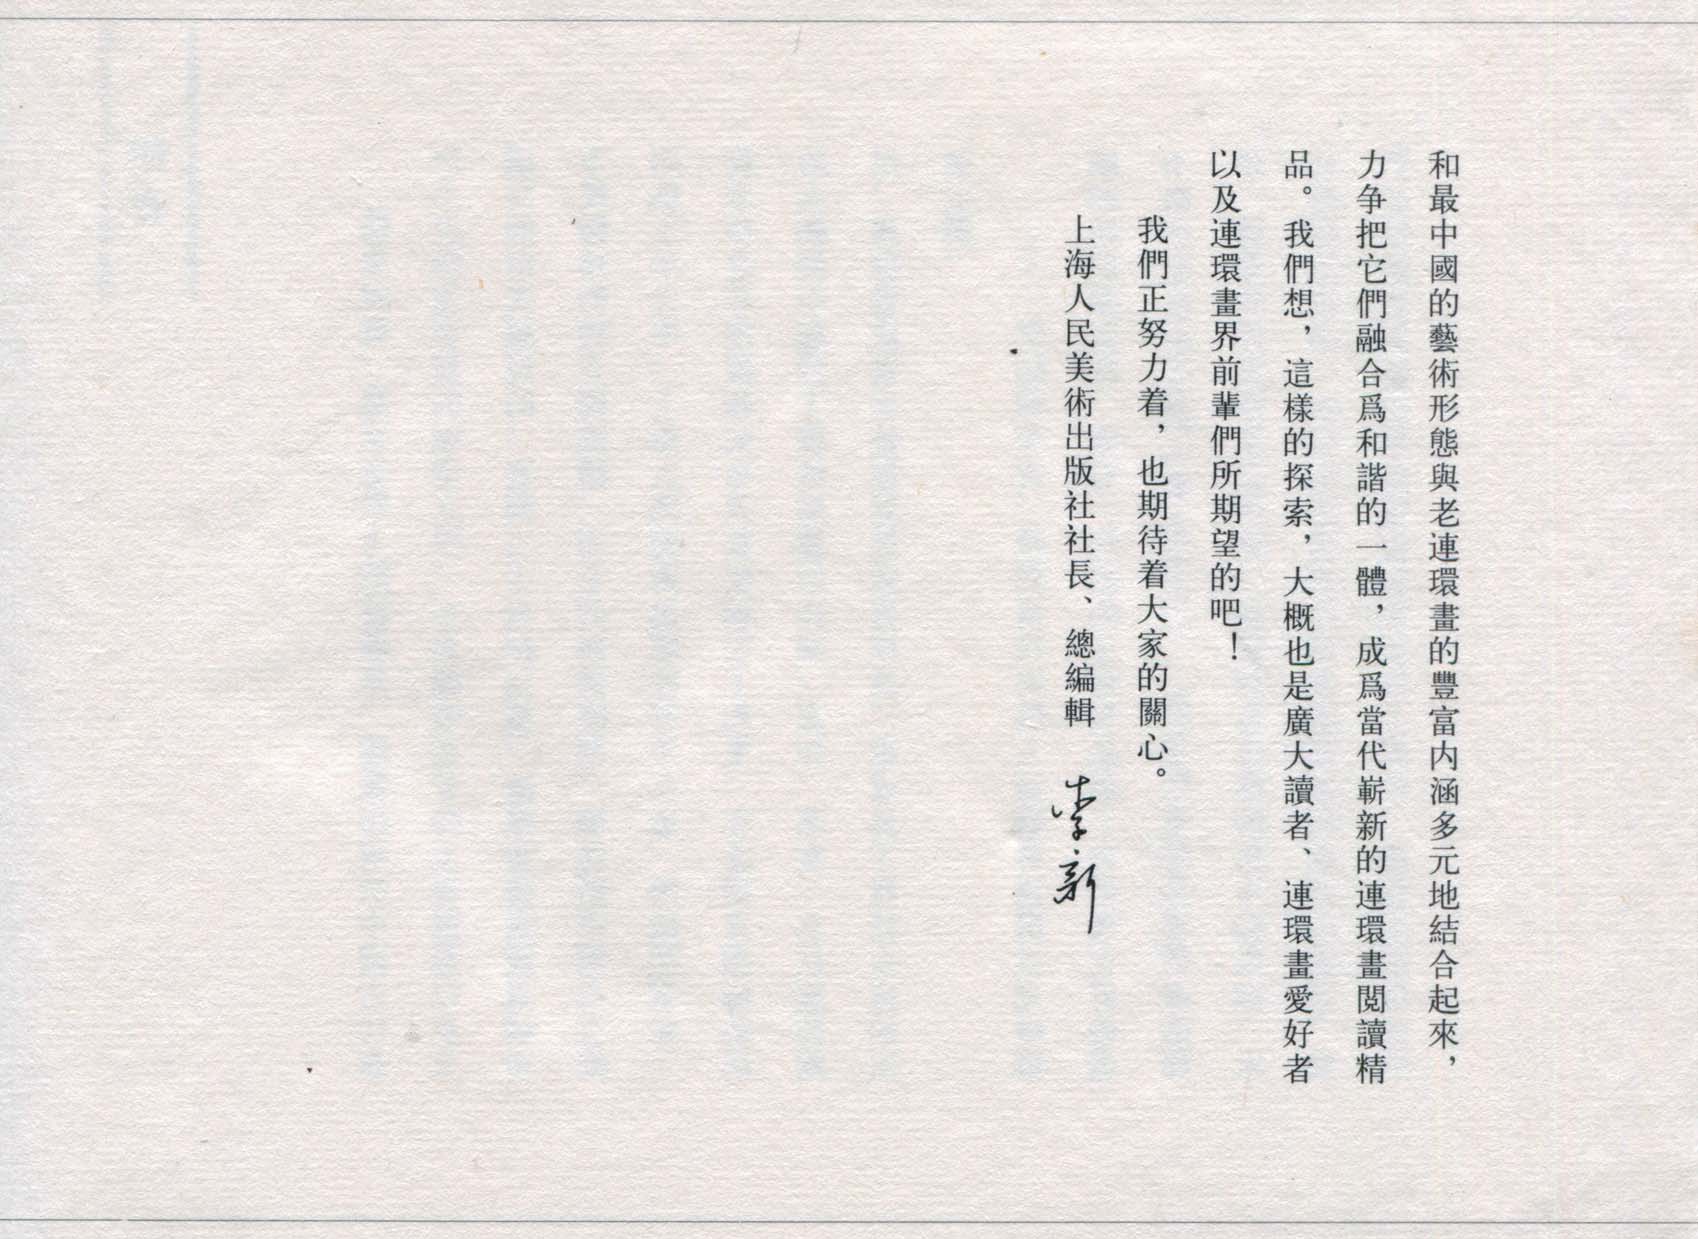 和最中國的藝術形態與老連環畫的豐富内涵多元地結合起來，
力争把它們融合爲和諧的一體，成爲當代嶄新的連環畫閲讀精
品。我們想，這樣的探索，大概也是廣大讀者、連環畫愛好者
以及連環畫界前輩們所期望的吧！
我們正努力着，也期待着大家的關心。
上海人民美術出版社社長、總編輯 李新